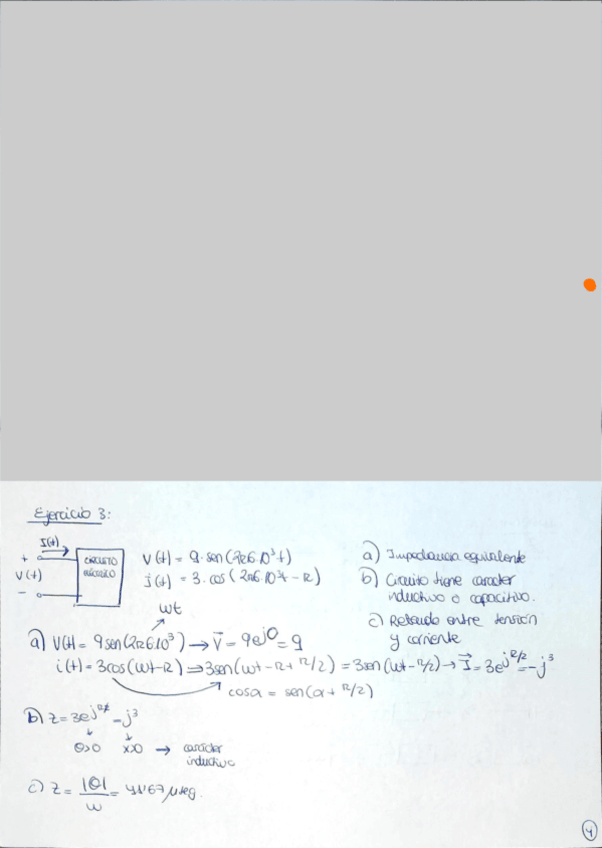 Ejercicio 3:
I(t)
+
V(t)
-
CIRCUITO
V(t) = 9·sen(2π6·10³t)
i(t) = 3·cos(2π6·10³t - π)
a) Impedancia equivalente
b) Circuito tiene caracter
inductivo o capacitivo.
c) Retardo entre tensión
y corriente
wt
a) V(t) = 9sen(2π6·10³) → V⃗ = 9e^j0 = 9
i(t) = 3cos(wt-π) ⇒ 3sen(wt - π + π/2) = 3sen(wt - π/2) → I⃗ = 3e^jπ/2 = -j3
cosα = sen(α + π/2)
b) z = 3e^jπ/2 - j3
θ>0 x>0 → carácter
inductivo
c) z = |θ|/w = 41'67 μseg.
4